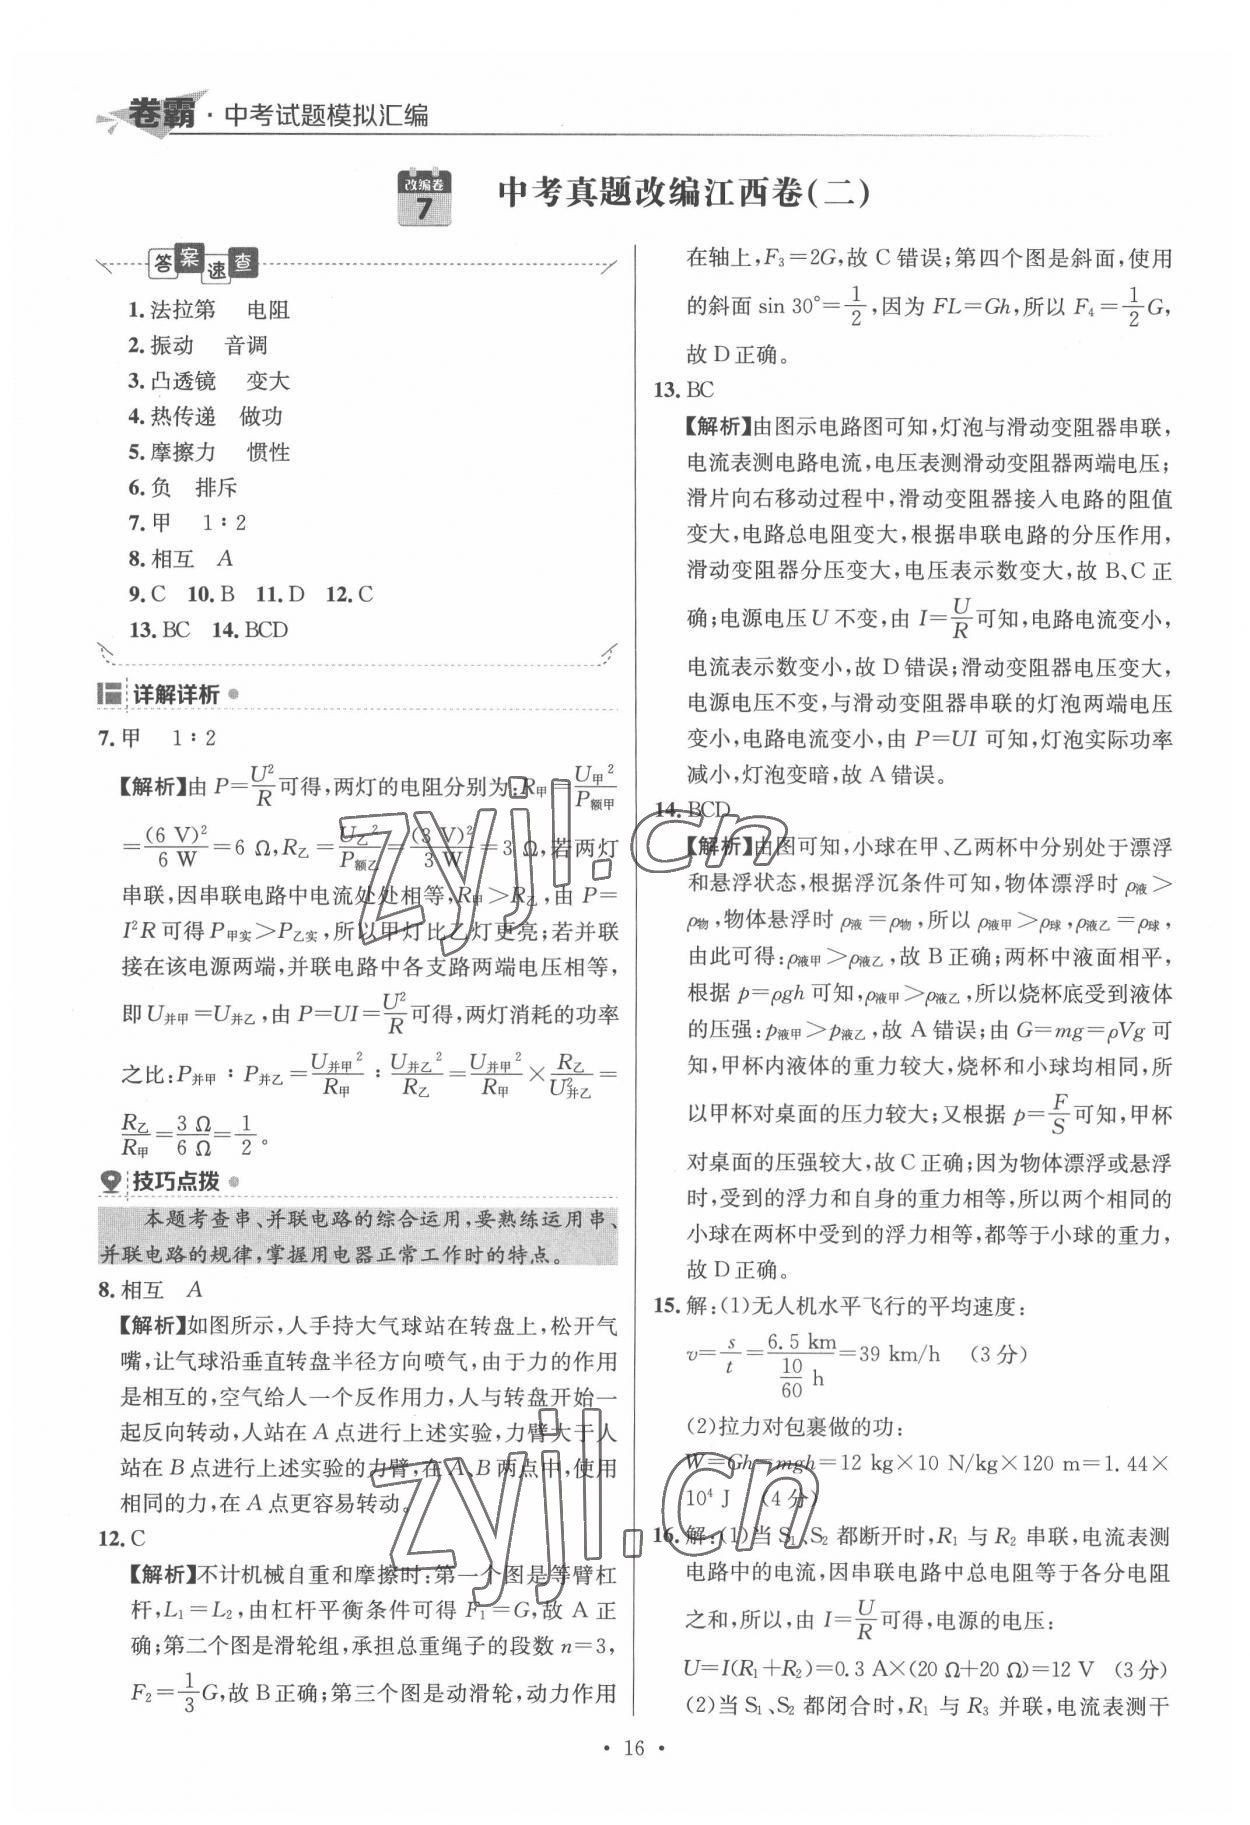 卷霸·中考试题模拟汇编
改编卷
7
中考真题改编江西卷(二)
答案速查
1.法拉第 电阻
2.振动 音调
3.凸透镜 变大
4.热传递 做功
5.摩擦力 惯性
6.负 排斥
7.甲 1∶2
8.相互 A
9.C 10.B 11.D 12.C
13.BC 14.BCD
详解详析
7.甲 1∶2
【解析】由 P=U²/R可得,两灯的电阻分别为:R甲=U甲²/P额甲
=(6 V)²/6 W=6 Ω,R乙=U乙²/P额乙=(3 V)²/3 W=3 Ω,若两灯
串联,因串联电路中电流处处相等,R甲>R乙,由 P=
I²R可得P甲实>P乙实,所以甲灯比乙灯更亮;若并联
接在该电源两端,并联电路中各支路两端电压相等,
即U并甲=U并乙,由 P=UI=U²/R可得,两灯消耗的功率
之比:P并甲∶P并乙=U并甲²/R甲∶U并乙²/R乙=U并甲²/R甲×R乙/U²并乙=
R乙/R甲=3 Ω/6 Ω=1/2。
技巧点拨
本题考查串、并联电路的综合运用,要熟练运用串、
并联电路的规律,掌握用电器正常工作时的特点。
8.相互 A
【解析】如图所示,人手持大气球站在转盘上,松开气
嘴,让气球沿垂直转盘半径方向喷气,由于力的作用
是相互的,空气给人一个反作用力,人与转盘开始一
起反向转动,人站在A点进行上述实验,力臂大于人
站在B点进行上述实验的力臂,在A、B两点中,使用
相同的力,在A点更容易转动。
12.C
【解析】不计机械自重和摩擦时:第一个图是等臂杠
杆,L₁=L₂,由杠杆平衡条件可得F₁=G,故A正
确;第二个图是滑轮组,承担总重绳子的段数n=3,
F₂=1/3G,故B正确;第三个图是动滑轮,动力作用
在轴上,F₃=2G,故C错误;第四个图是斜面,使用
的斜面sin 30°=1/2,因为FL=Gh,所以F₄=1/2G,
故D正确。
13.BC
【解析】由图示电路图可知,灯泡与滑动变阻器串联,
电流表测电路电流,电压表测滑动变阻器两端电压;
滑片向右移动过程中,滑动变阻器接入电路的阻值
变大,电路总电阻变大,根据串联电路的分压作用,
滑动变阻器分压变大,电压表示数变大,故B、C正
确;电源电压U不变,由I=U/R可知,电路电流变小,
电流表示数变小,故D错误;滑动变阻器电压变大,
电源电压不变,与滑动变阻器串联的灯泡两端电压
变小,电路电流变小,由P=UI可知,灯泡实际功率
减小,灯泡变暗,故A错误。
14.BCD
【解析】由图可知,小球在甲、乙两杯中分别处于漂浮
和悬浮状态,根据浮沉条件可知,物体漂浮时ρ液>
ρ物,物体悬浮时ρ液=ρ物,所以ρ液甲>ρ球,ρ液乙=ρ球,
由此可得:ρ液甲>ρ液乙,故B正确;两杯中液面相平,
根据p=ρgh可知,ρ液甲>ρ液乙,所以烧杯底受到液体
的压强:p液甲>p液乙,故A错误;由G=mg=ρVg可
知,甲杯内液体的重力较大,烧杯和小球均相同,所
以甲杯对桌面的压力较大;又根据p=F/S可知,甲杯
对桌面的压强较大,故C正确;因为物体漂浮或悬浮
时,受到的浮力和自身的重力相等,所以两个相同的
小球在两杯中受到的浮力相等,都等于小球的重力,
故D正确。
15.解:(1)无人机水平飞行的平均速度:
v=s/t=6.5 km/(10/60 h)=39 km/h (3分)
(2)拉力对包裹做的功:
W=Gh=mgh=12 kg×10 N/kg×120 m=1.44×
10⁴ J (4分)
16.解:(1)当S₁、S₂都断开时,R₁与R₂串联,电流表测
电路中的电流,因串联电路中总电阻等于各分电阻
之和,所以,由I=U/R可得,电源的电压:
U=I(R₁+R₂)=0.3 A×(20 Ω+20 Ω)=12 V (3分)
(2)当S₁、S₂都闭合时,R₁与R₃并联,电流表测干
·16·
zyjl.cn
zyjl.cn